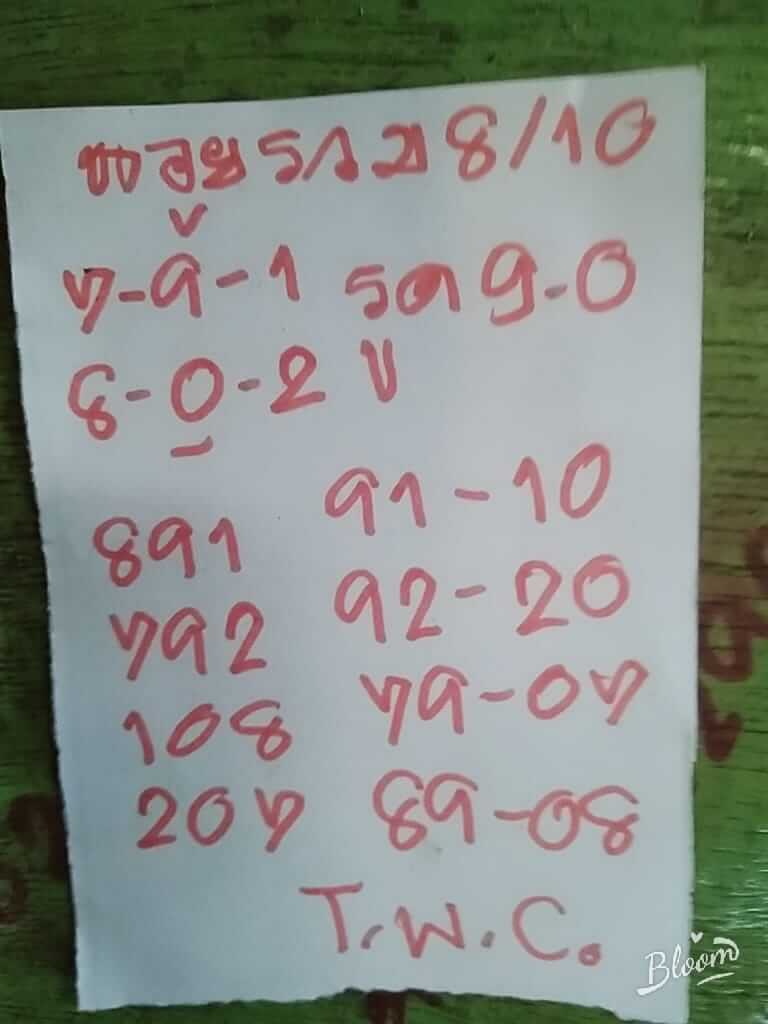 หวยราม 8/10
7-9-1 รถ 9-0
8-0-2 บ
891 91-10
792 92-20
108 79-07
207 89-08
T.W.C.
Bloom